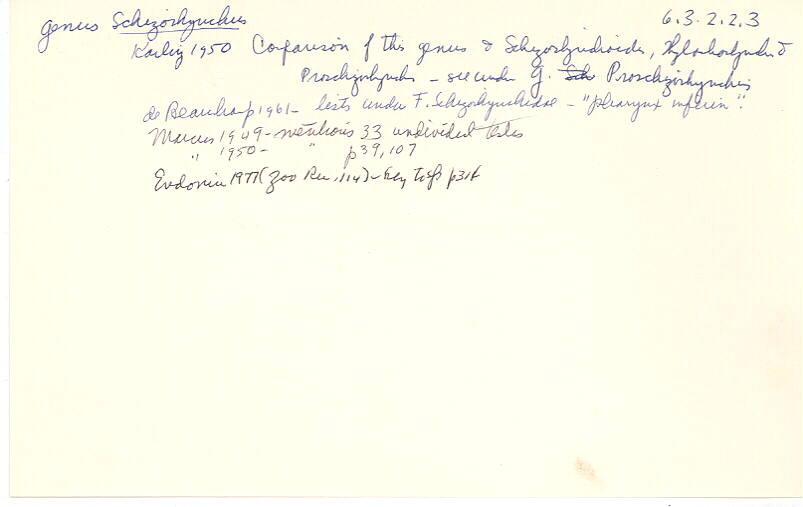 genus Schizorhynchus 6.3.2.2.3
Karling 1950 Comparison of this genus & Schizorhynchoides, Thylacorhynchus &
Proschizorhynchus - see under g. Sch Proschizorhynchus
de Beauchamp 1961 - lists under F. Schizorhynchidae - "pharynx inférieur".
Marcus 1949 - mentions 33 undivided testes
" 1950 - " p39, 107
Evdonin 1977 (Zoo Rec. 114) - key to sp p316